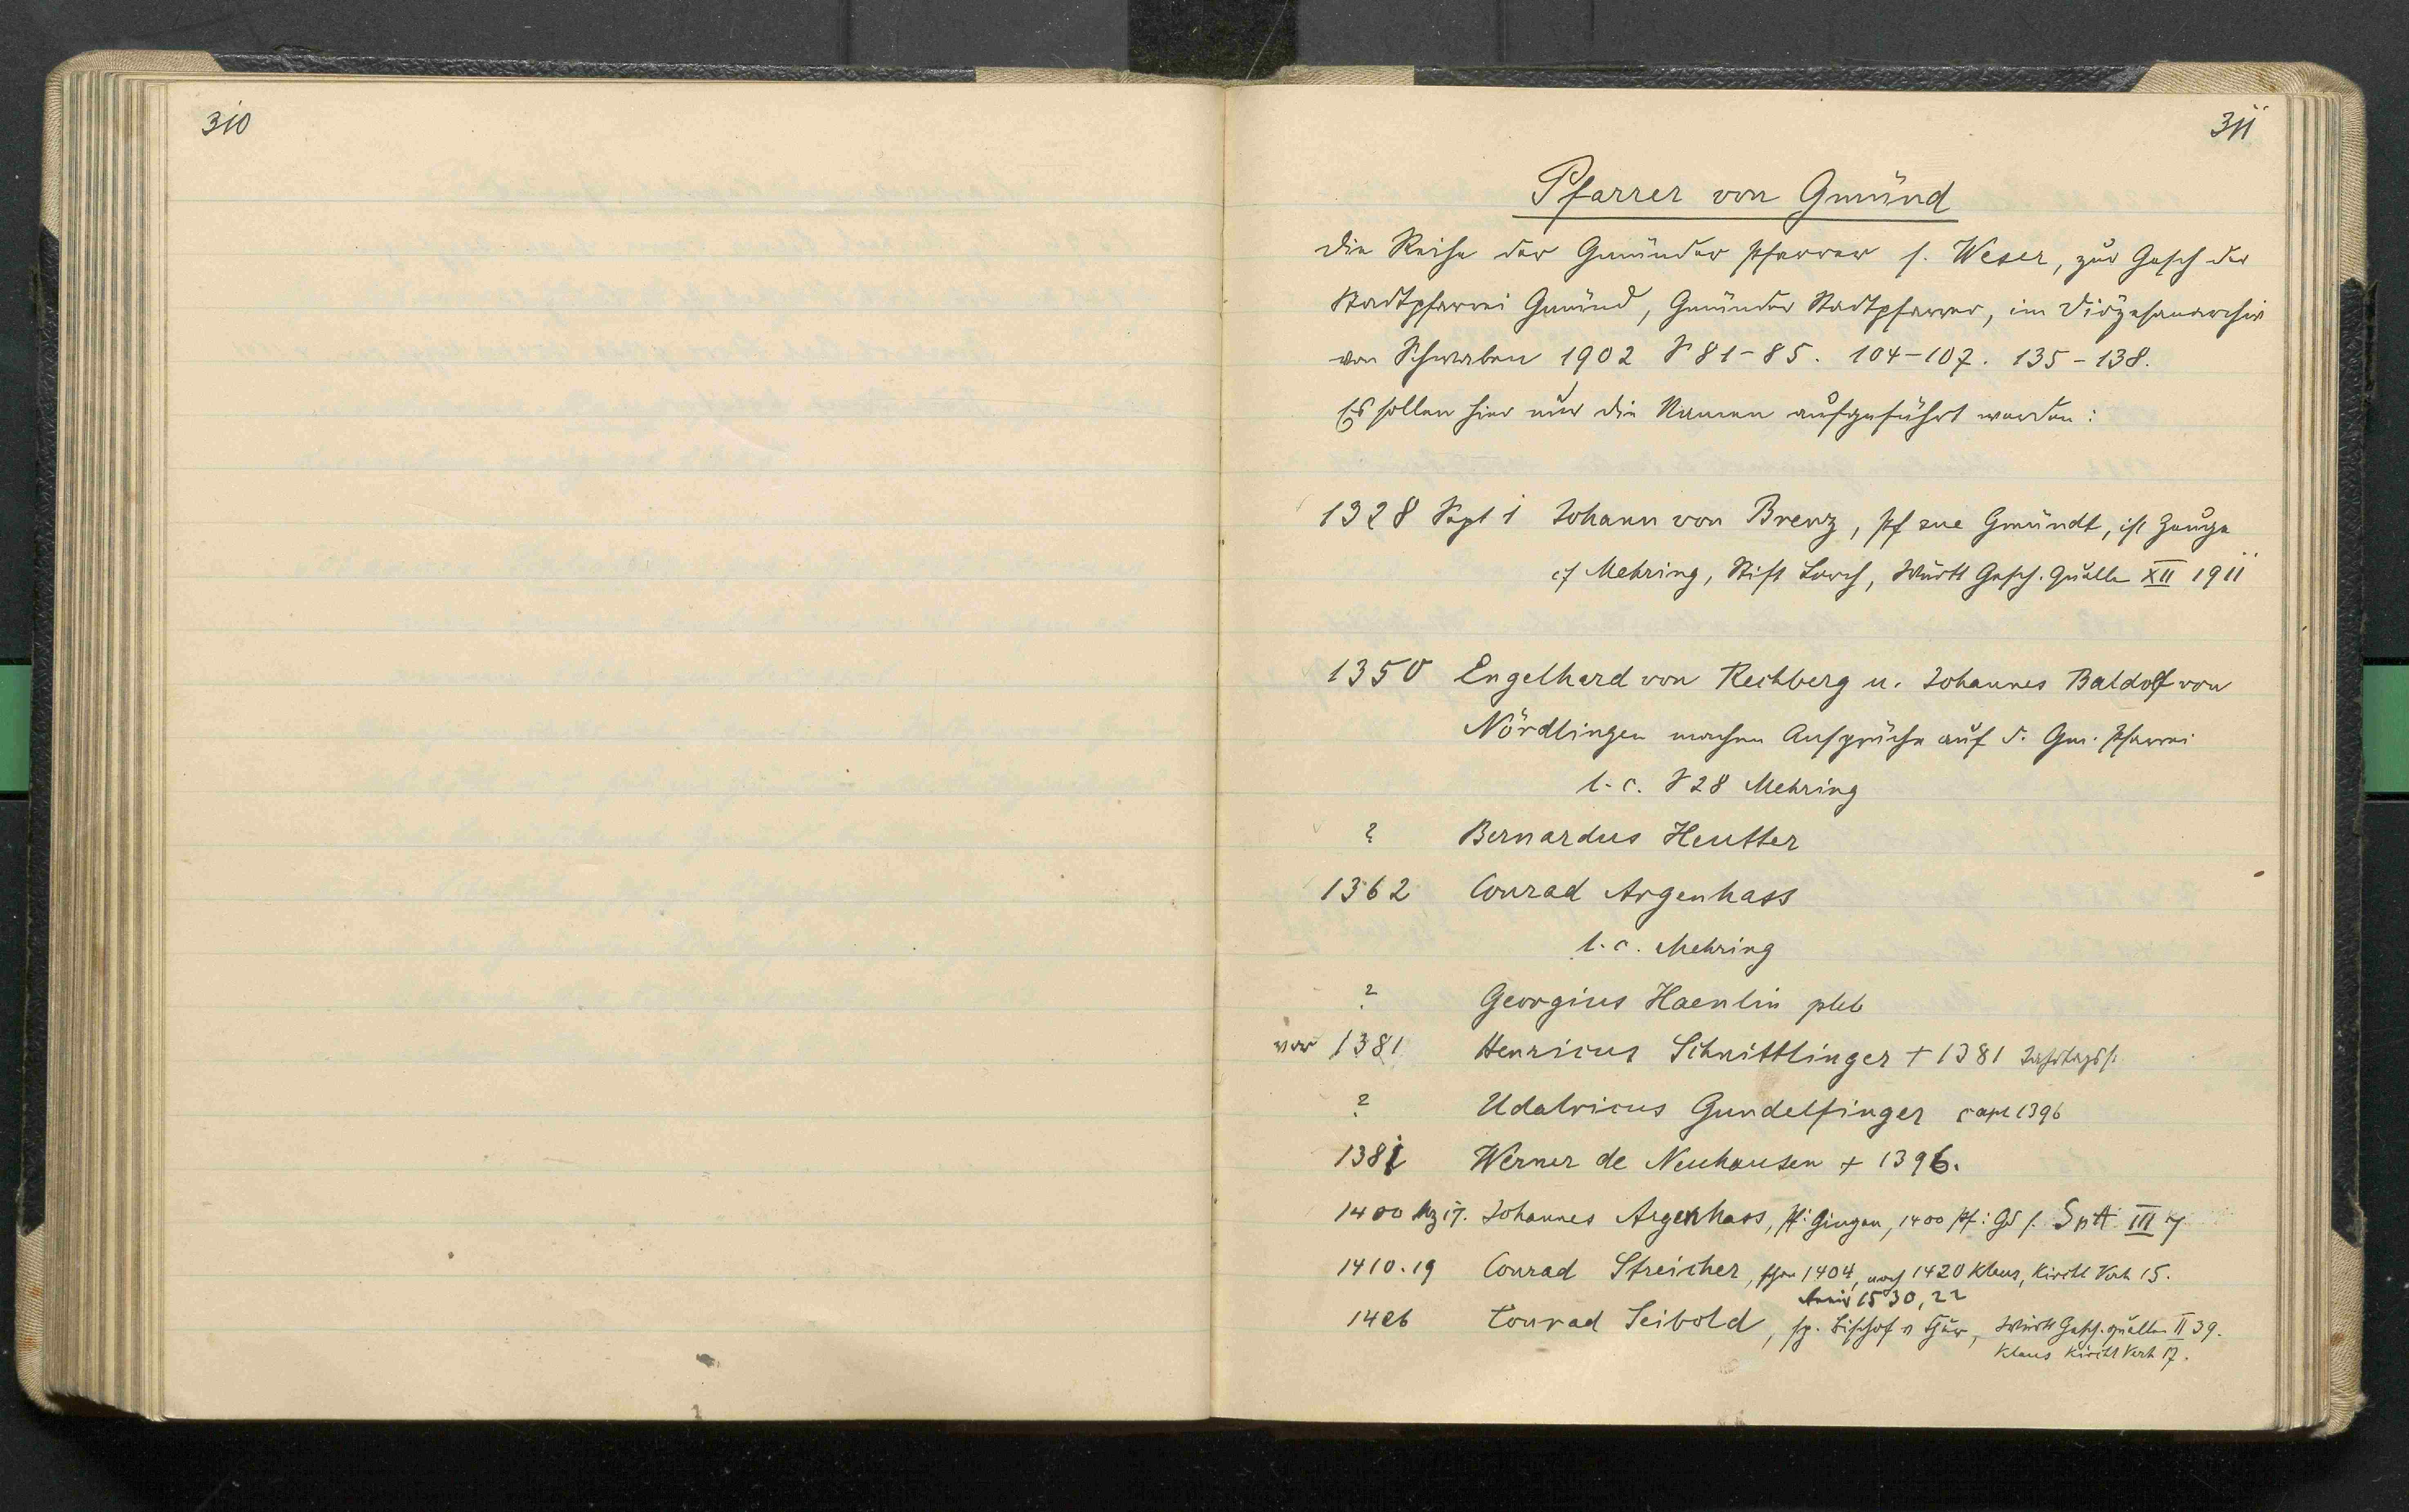 310
311
Pfarrer von Gmünd
Die Reihe der Gmünder Pfarrer s. Weser, zur Gesch der
Stadtpfarrei Gmünd, Gmünder Stadtpfarrer, im Diözesanarchiv
von Schwaben 1902 S 81-85. 104-107. 135-138.
Es sollen hier nur die Namen aufgeführt werden:
1328 Sept 1 Johann von Brenz, Pf zue Gmündt, ist Zeuge
cf Mehring, Stift Lorch, Württ Gesch. Quelle XII 1911
1350 Engelhard von Rechberg u. Johannes Baldolf von
Nördlingen machen Ansprüche auf d. Gm. Pfarrei
l. c. S 28 Mehring
? Bernardus Heutter
1362 Conrad Argenhass
l. c. Mehring
? Georgius Haenlin pleb
vor 1381 Henricus Schnittlinger + 1381 Jahrtagsst.
? Udalricus Gundelfinger 1396
1381 Werner de Neuhausen + 1396.
1400 Mz 17. Johannes Argenhass, Pf: Gingen, 1400 Pf: Gd s. SpA III 7
1410.19 Conrad Streicher, schon 1404, noch 1420 Klaus, Kirchl Verh 15.
1530, 22
1426 Conrad Seibold, sp. Bischof v Chur, Württ Gesch. quellen II 39.
Klaus Kirchl Verh 17.